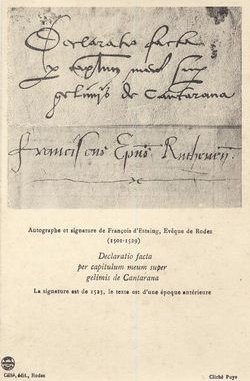 Declaratio facta
p capitlum meum sup
gelimis de Cantarana
Franciscus Epus Ruthenen
Autographe et signature de François d'Estaing, Evêque de Rodez
(1501-1529)
Declaratio facta
per capitulum meum super
gelimis de Cantarana
La signature est de 1523, le texte est d'une époque antérieure
Carrère, édit., Rodez
Cliché Puye